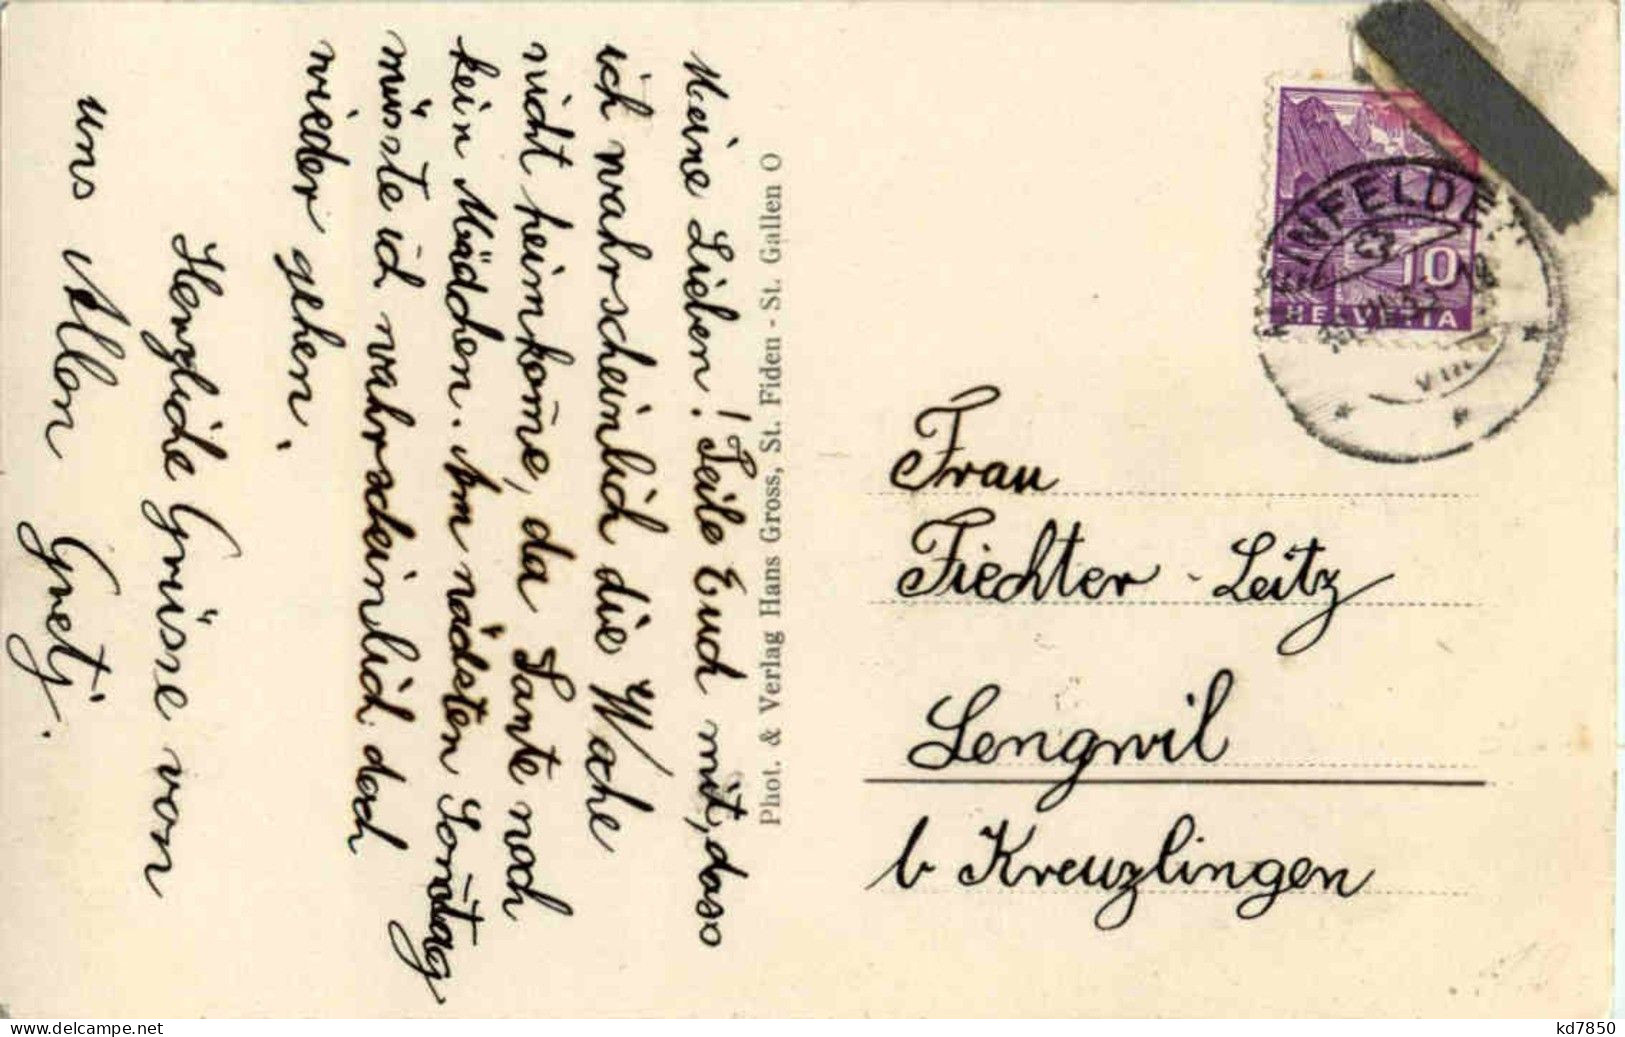 Meine Lieben! Teile Euch mit, dass
ich wahrscheinlich die Woche
nicht heimkom̄e, da Tante noch
kein Mädchen. Am nächsten Son̄tag
müsste ich wahrscheinlich doch
wieder gehen.
Herzliche Grüsse von
uns Allen Gretj.
Phot. & Verlag Hans Gross, St. Fiden - St. Gallen O
INFELDEN
10
HELVETIA
VIII
Frau
Fiechter - Leitz
Lengwil
b Kreuzlingen
kd7850
www.delcampe.net